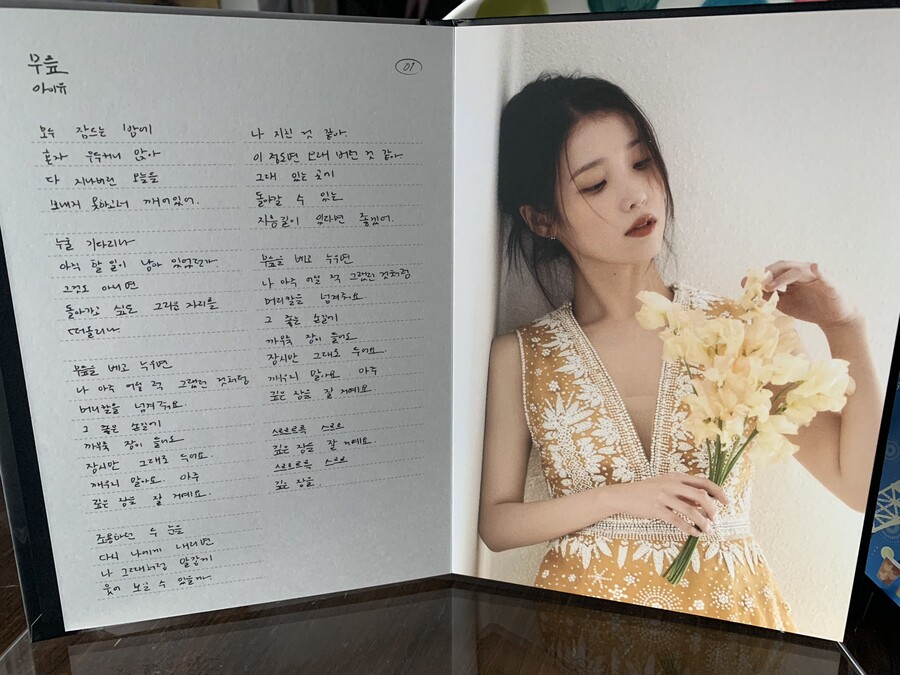 무릎
아이유
01
모두 잠드는 밤에
혼자 우두커니 앉아
다 지나버린 오늘을
보내지 못하고서 깨어있어.
누굴 기다리나
아직 할 일이 남아 있었던가
그것도 아니면
돌아가고 싶은 그리운 자리를
떠올리나
무릎을 베고 누우면
나 아주 어릴 적 그랬던 것처럼
머리칼을 넘겨줘요
그 좋은 손길에
까무룩 잠이 들어도
잠시만 그대로 두어요.
깨우지 말아요 아주
깊은 잠을 잘 거예요.
조용하던 두 눈을
다시 나에게 내리면
나 그때처럼 말갛게
웃어 보일 수 있을까
나 지친 것 같아
이 정도면 오래 버틴 것 같아
그대 있는 곳에
돌아갈 수 있는
지름길이 있다면 좋겠어.
무릎을 베고 누우면
나 아주 어릴 적 그랬던 것처럼
머리칼을 넘겨줘요
그 좋은 손길에
까무룩 잠이 들어도
잠시만 그대로 두어요.
깨우지 말아요 아주
깊은 잠을 잘 거예요
스르르륵 스르르
깊은 잠을 잘 거예요
스르르륵 스르르
깊은 잠을.